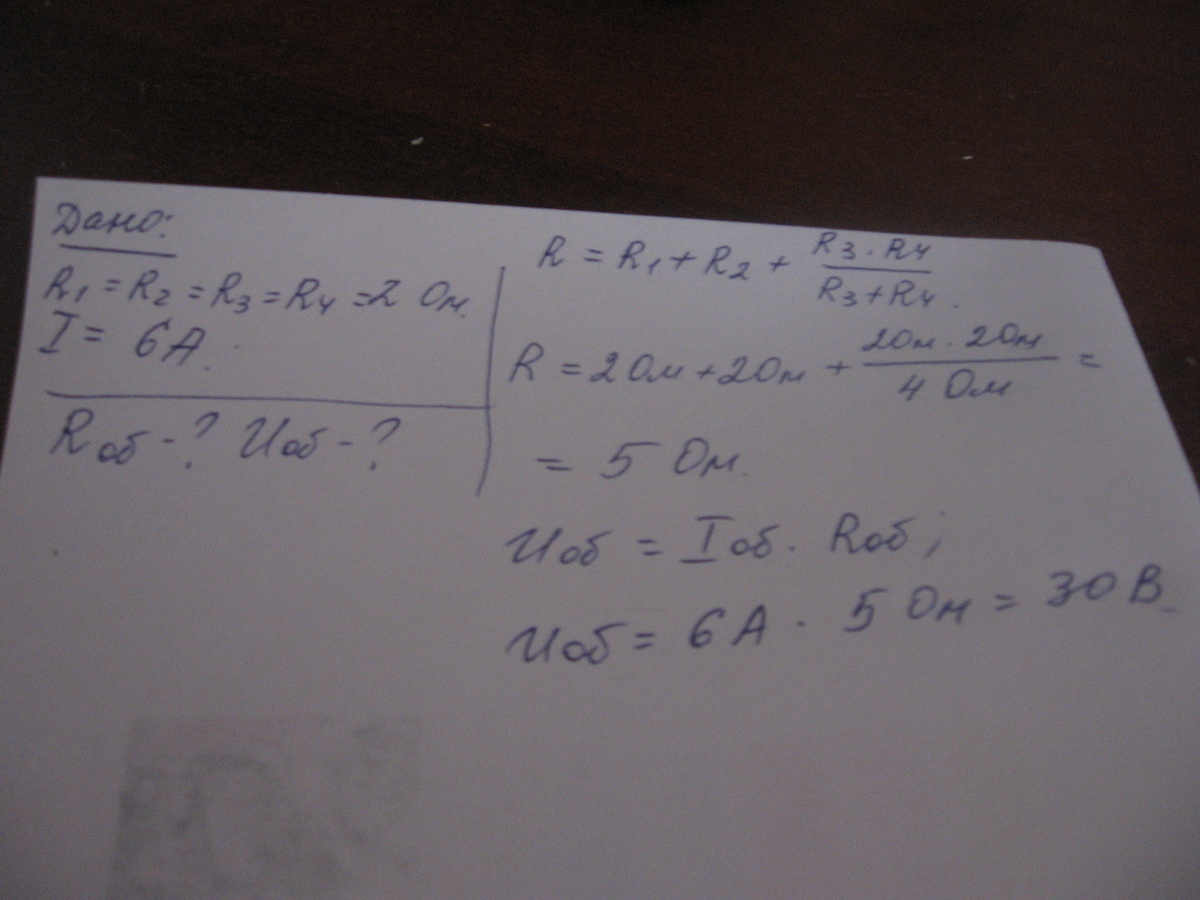 Дано:
R₁ = R₂ = R₃ = R₄ = 2 Ом.
I = 6А.
Rоб - ? Uоб - ?
R = R₁ + R₂ + (R₃ · R₄)/(R₃ + R₄).
R = 2Ом + 2Ом + (2Ом · 2Ом)/(4 Ом) =
= 5 Ом.
Uоб = Iоб · Rоб ;
Uоб = 6А · 5 Ом = 30 В